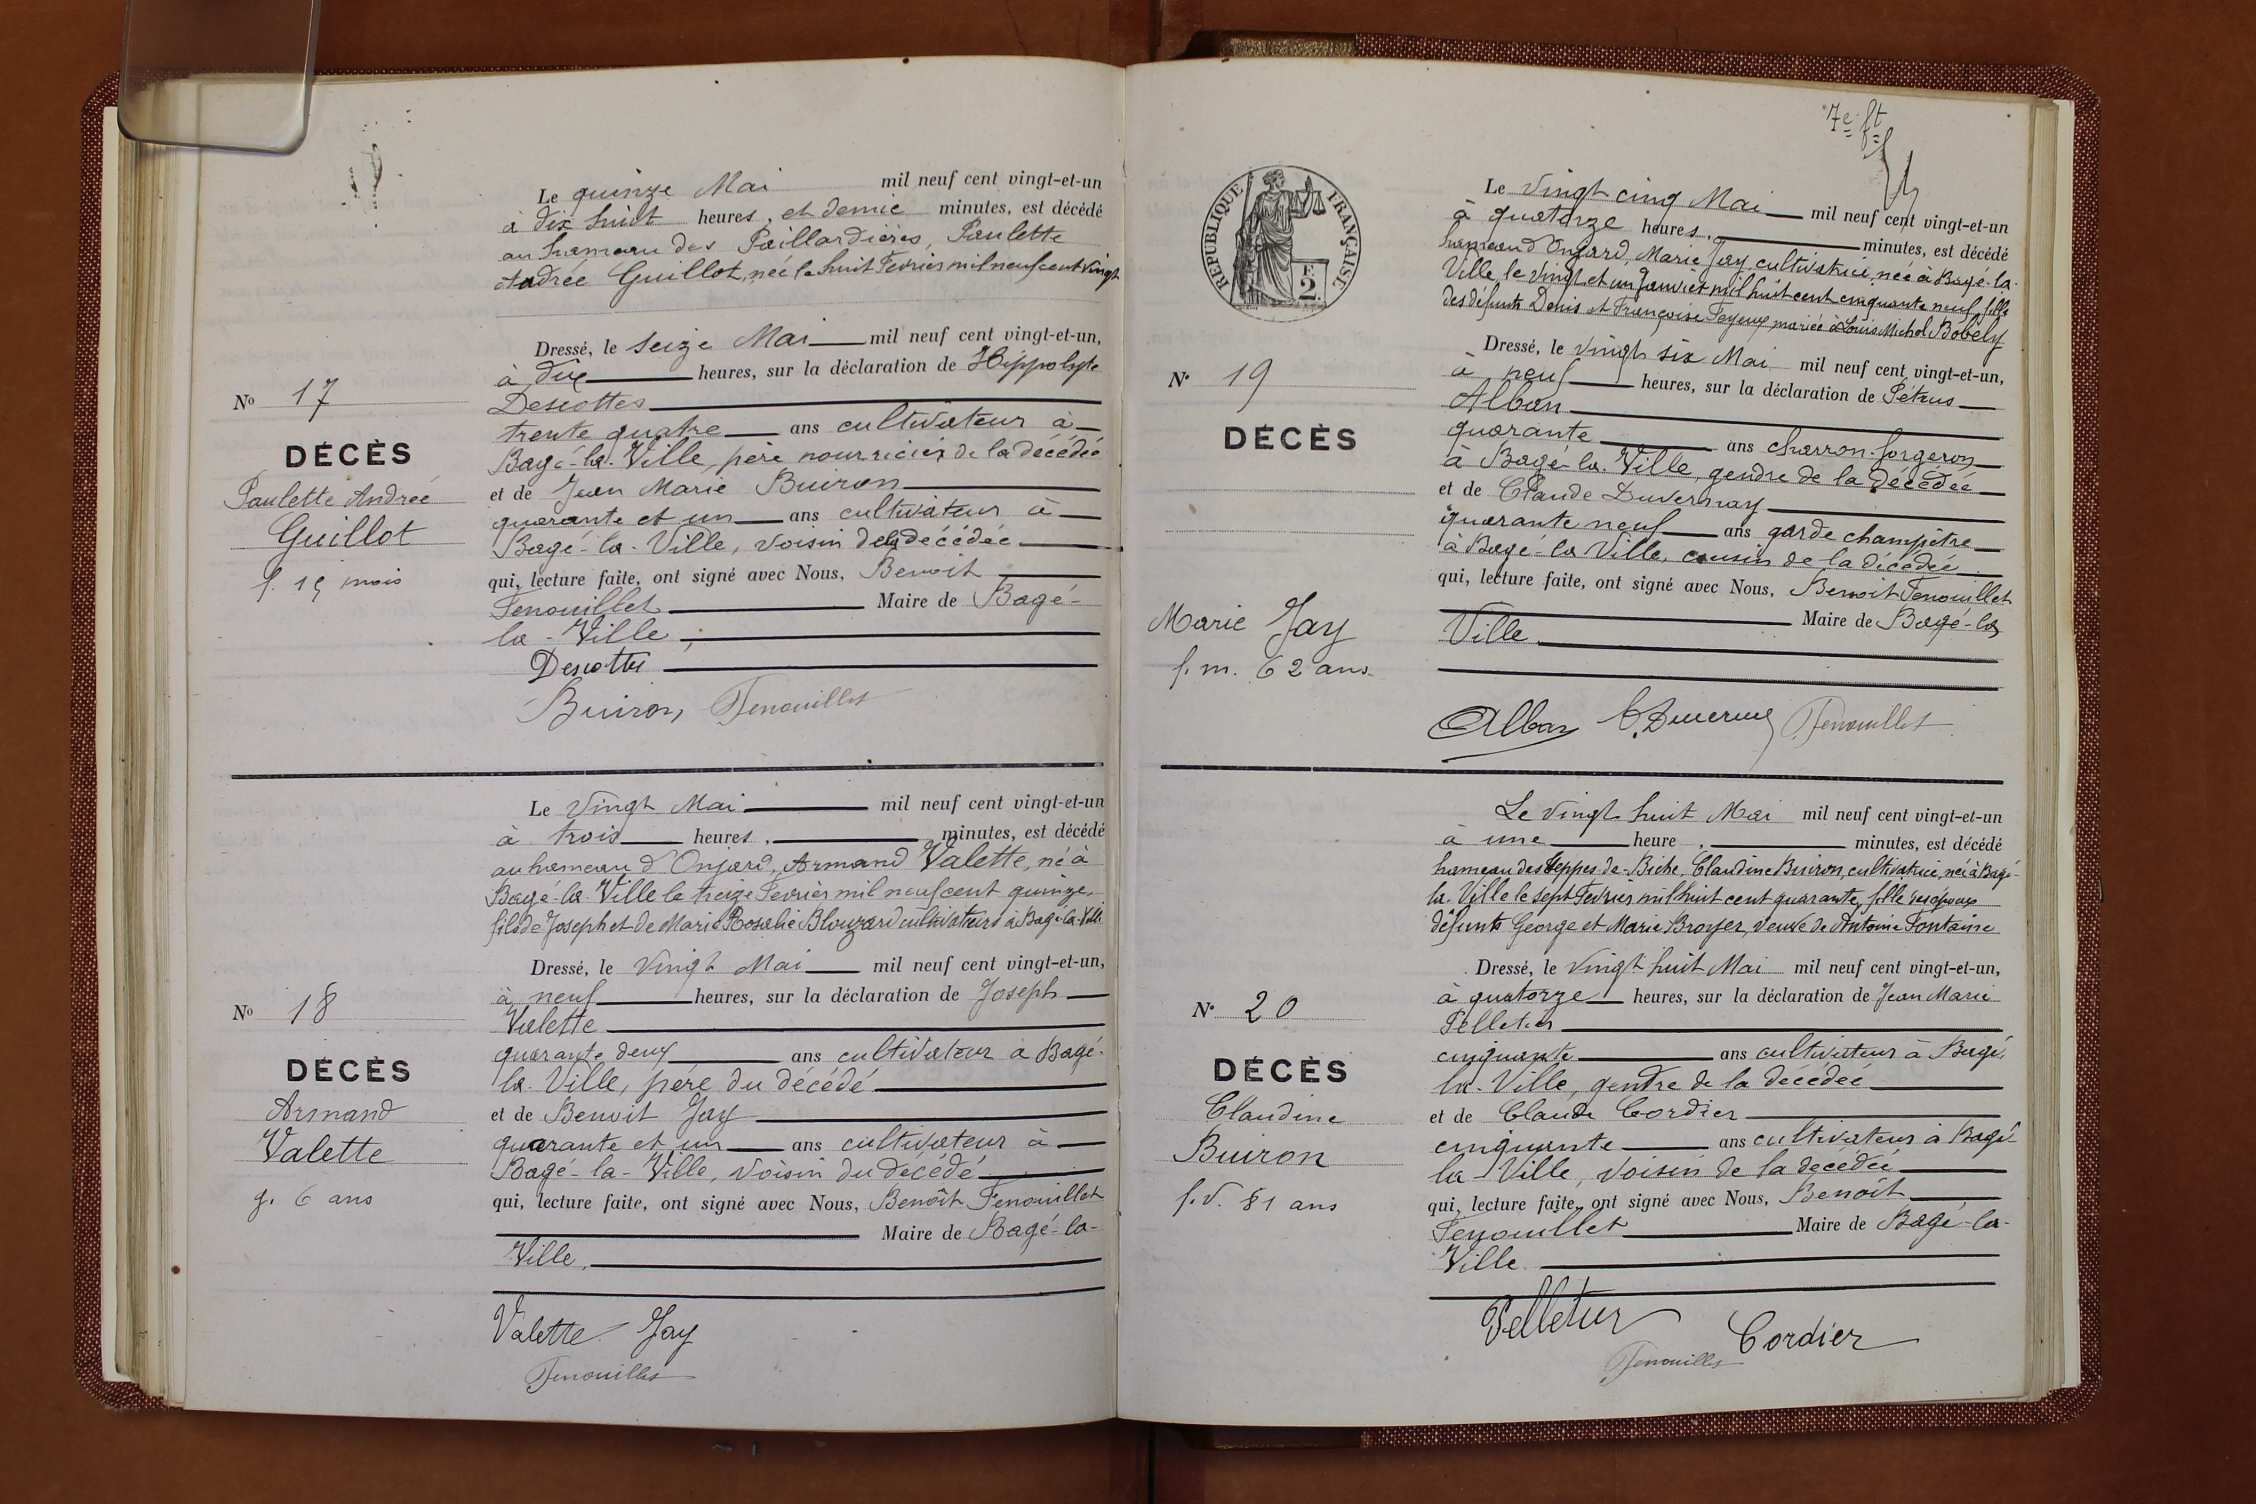 Le quinze Mai mil neuf cent vingt-et-un
à dix huit heures, et demie minutes, est décédé
au hameau des Paillardières, Paulette
Andrée Guillot, née le huit Février mil neuf cent vingt
Dressé, le seize Mai mil neuf cent vingt-et-un,
à dix heures, sur la déclaration de Hippolyte
Descottes
trente quatre ans cultivateur à
Bagé-la-Ville, père nourricier de la décédée
et de Jean Marie Buiron
quarante et un ans cultivateur à
Bagé-la-Ville, voisin de la décédée
qui, lecture faite, ont signé avec Nous, Benoit
Fenouillet Maire de Bagé-
la-Ville,
Descottes
Buiron, Fenouillet
No 17
DÉCÈS
Paulette Andrée
Guillot
f. 15 mois
Le vingt Mai mil neuf cent vingt-et-un
à trois heures, minutes, est décédé
au hameau d'Onjard, Armand Valette, né à
Bagé-la-Ville le treize Février mil neuf cent quinze,
fils de Joseph et de Marie Rosalie Blouzard cultivateurs à Bagé-la-Ville
Dressé, le vingt Mai mil neuf cent vingt-et-un,
à neuf heures, sur la déclaration de Joseph
Valette
quarante deux ans cultivateur à Bagé-
la-Ville, père du décédé
et de Benoit Jay
quarante et un ans cultivateur à
Bagé-la-Ville, voisin du décédé
qui, lecture faite, ont signé avec Nous, Benoît Fenouillet
Maire de Bagé-la-
Ville,
Valette Jay
Fenouillet
No 18
DÉCÈS
Armand
Valette
g. 6 ans
7e ft
RÉPUBLIQUE FRANÇAISE
2 F.
Le vingt cinq Mai mil neuf cent vingt-et-un
à quatorze heures, minutes, est décédé
hameau d'Onjard, Marie Jay, cultivatrice, née à Bagé-la-
Ville, le vingt et un Janvier mil huit cent cinquante neuf, fille
des défunts Denis et Françoise Feyeux mariée à Louis Michel Bobély
Dressé, le vingt six Mai mil neuf cent vingt-et-un,
à neuf heures, sur la déclaration de Pétrus
Alban
quarante ans charron-forgeron
à Bagé-la-Ville, gendre de la décédée
et de Claude Duvernay
quarante neuf ans garde champêtre
à Bagé-la Ville, cousin de la décédée
qui, lecture faite, ont signé avec Nous, Benoit Fenouillet
Maire de Bagé-la
Ville.
Alban C. Duvernay Fenouillet
No 19
DÉCÈS
Marie Jay
f. m. 62 ans
Le vingt huit Mai mil neuf cent vingt-et-un
à une heure, minutes, est décédé
hameau des Teppes-de-Biche, Claudine Buiron, cultivatrice, née à Bagé-
la-Ville le sept Février mil huit cent quarante, fille des époux
défunts George et Marie Broyer, veuve de Antoine Fontaine
Dressé, le vingt huit Mai mil neuf cent vingt-et-un,
à quatorze heures, sur la déclaration de Jean Marie
Pelletier
cinquante ans cultivateur à Bagé-
la-Ville, gendre de la décédée
et de Claude Cordier
cinquante ans cultivateur à Bagé-
la-Ville, voisin de la décédée
qui, lecture faite, ont signé avec Nous, Benoît
Fenouillet Maire de Bagé-la-
Ville
Pelletier Cordier
Fenouillet
No 20
DÉCÈS
Claudine
Buiron
f. v. 81 ans